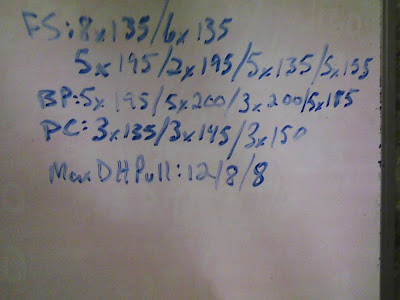 FS: 8x135/6x135
5x195/2x195/5x135/5x155
BP: 5x195/5x200/3x200/5x185
PC: 3x135/3x145/3x150
Max DH Pull: 12/8/8